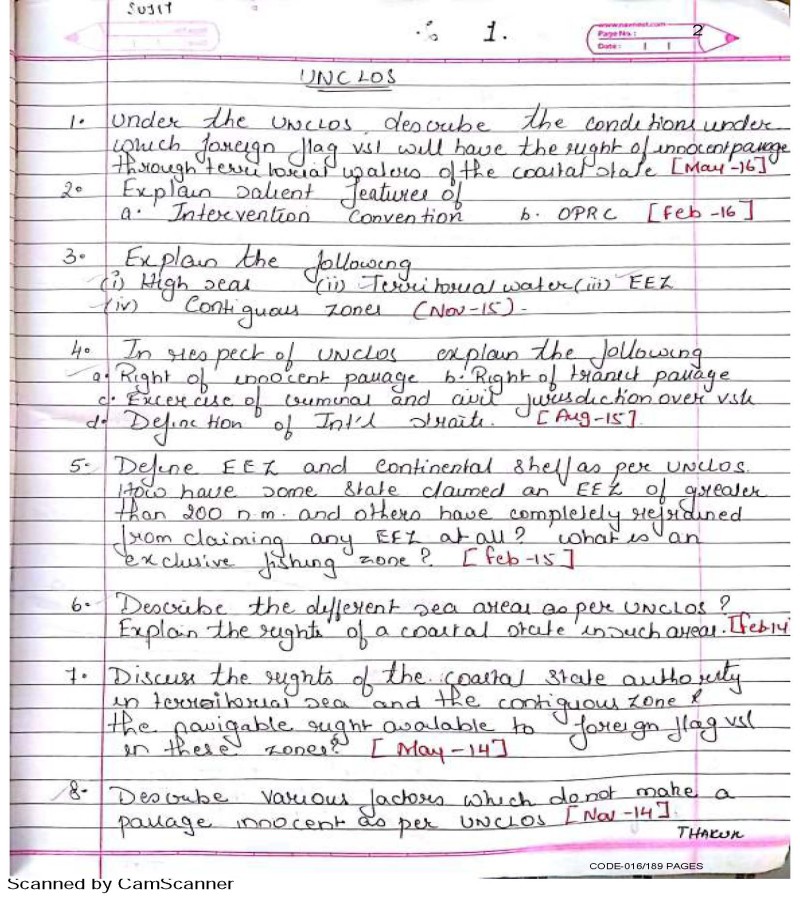 SUJIT
1.
www.navneet.com
Page No.: 2
Date:
UNCLOS
1. Under the UNCLOS, describe the conditions under
which foreign flag vsl will have the right of innocent passage
through territorial waters of the coastal state [May-16]
2. Explain salient features of
a. Intervention Convention b. OPRC [Feb-16]
3. Explain the following
(i) High seas (ii) Territorial water (iii) EEZ
(iv) Contiguous zones (Nov-15).
4. In respect of UNCLOS explain the following
a. Right of innocent passage b. Right of transit passage
c. Excercise of criminal and civil jurisdiction over vsls
d. Definction of Int'l straits. [Aug-15]
5. Define EEZ and continental shelf as per UNCLOS.
How have some state claimed an EEZ of greater
than 200 n.m. and others have completely refrained
from claiming any EEZ at all? what is an
exclusive fishing zone? [feb-15]
6. Describe the different sea areas as per UNCLOS?
Explain the rights of a coastal state in such areas. [Feb14
7. Discuss the rights of the coastal state authority
in terroitorial sea and the contiguous zone &
the navigable right available to foreign flag vsl
in these zones? [May-14]
8. Describe various factors which do not make a
passage innocent as per UNCLOS [Nov-14].
THAKUR
CODE-016/189 PAGES
Scanned by CamScanner